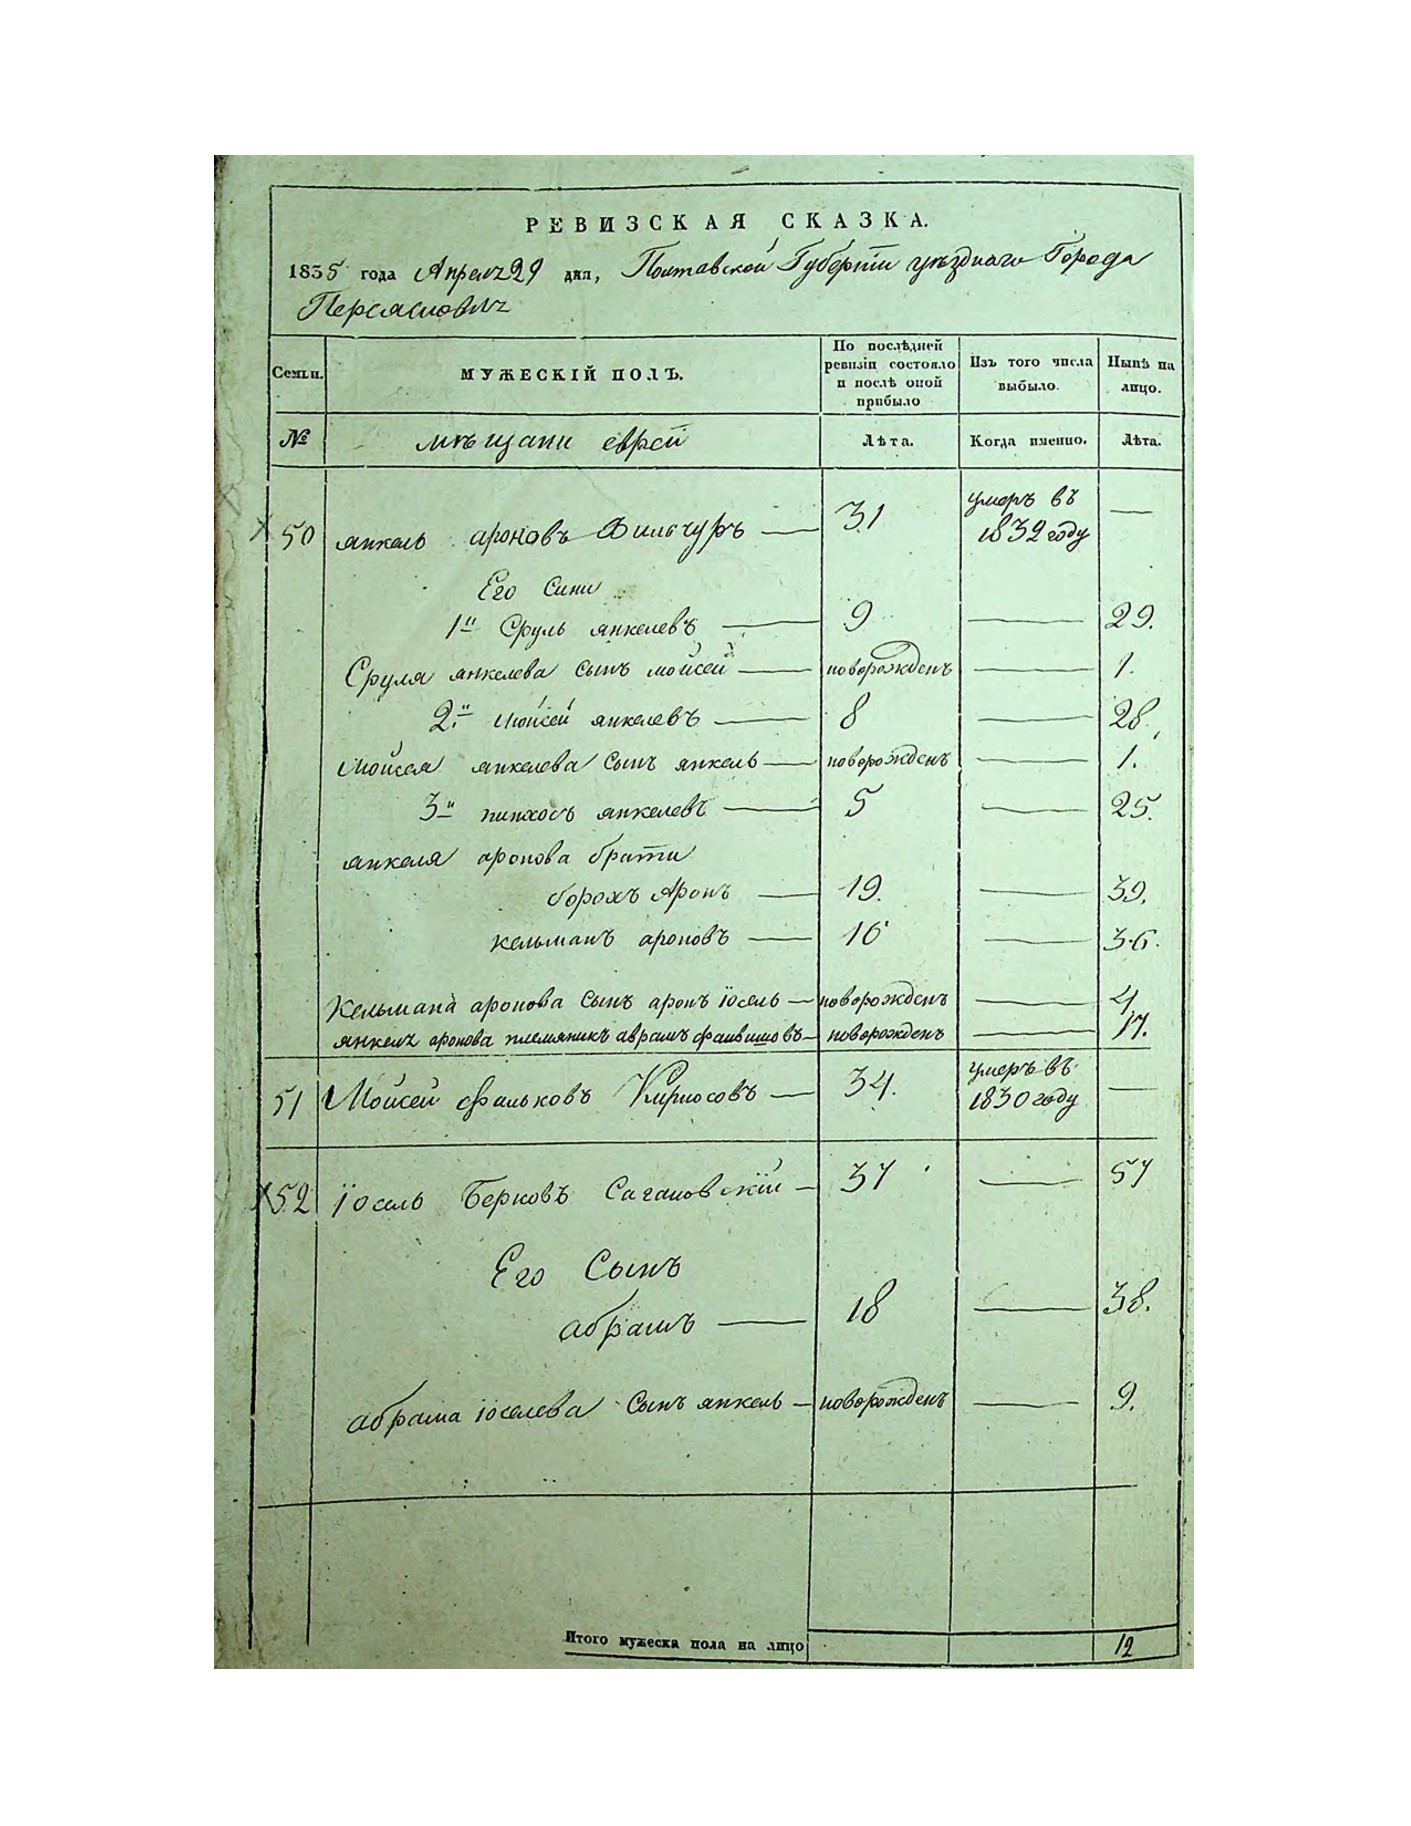 РЕВИЗСКАЯ СКАЗКА.
1835 года Апреля 29 дня, Полтавской Губернiи уѣзднаго Города
Переяслова
Семьи. МУЖЕСКIЙ ПОЛЪ. По послѣдней ревизiи состояло и послѣ оной прибыло Изъ того числа выбыло. Нынѣ на лицо.
№ мѣщани еврей Лѣта. Когда именно. Лѣта.
50 янкель ароновъ Фильчуръ — 31 умеръ въ 1832 году —
Его Сини
1й Сруль янкелевъ — 9 — 29.
Сруля янкелева сынъ мойсей — новорожденъ — 1.
2й Мойсей янкелевъ — 8 — 28.
Мойсея янкелева сынъ янкель — новорожденъ — 1.
3й пинхосъ янкелевъ — 5 — 25.
янкеля аронова брати
борохъ Аронъ — 19. — 39.
кельманъ ароновъ — 16 — 36.
Кельмана аронова сынъ аронъ iосель — новорожденъ — 4
янкеля аронова племяникъ аврамъ файвишовъ — новорожденъ — 17.
51 Мойсей фальковъ — 34. умеръ въ 1830 году —
52 Iосель Берковъ Сагановскiй — 37 — 57
Его Сынъ
абрамъ — 18 — 38.
абрама iоселева сынъ янкель — новорожденъ — 9.
Итого мужеска пола на лицо 12